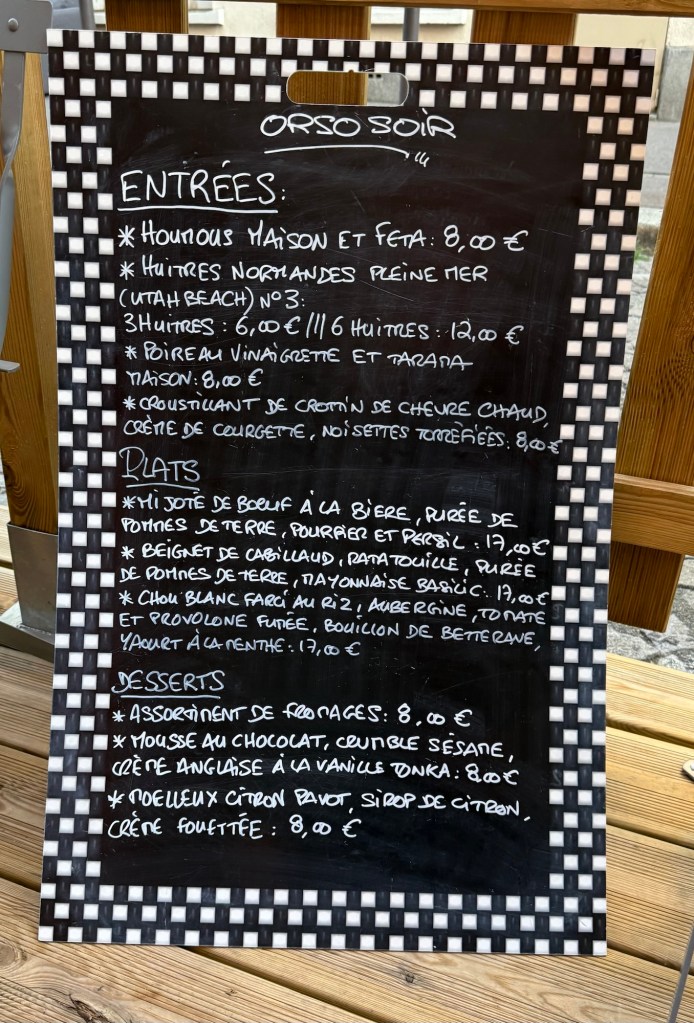 ORSO SOIR
ENTRÉES:
* HOUMOUS MAISON ET FETA: 8,00 €
* HUITRES NORMANDES PLEINE MER
(UTAH BEACH) N°3:
3 HUITRES : 6,00 € /// 6 HUITRES : 12,00 €
* POIREAU VINAIGRETTE ET TARAMA
MAISON: 8,00 €
* CROUSTILLANT DE CROTTIN DE CHEVRE CHAUD,
CRÈME DE COURGETTE, NOISETTES TORRÉFIÉES: 8,00 €
PLATS
* MIJOTÉ DE BOEUF À LA BIERE, PURÉE DE
POMMES DE TERRE, POURPIER ET PERSIL : 17,00 €
* BEIGNET DE CABILLAUD, RATATOUILLE, PURÉE
DE POMMES DE TERRE, MAYONNAISE BASILIC: 17,00 €
* CHOU BLANC FARCI AU RIZ, AUBERGINE, TOMATE
ET PROVOLONE FUMÉE, BOUILLON DE BETTERAVE,
YAOURT À LA MENTHE: 17,00 €
DESSERTS
* ASSORTIMENT DE FROMAGES: 8,00 €
* MOUSSE AU CHOCOLAT, CRUMBLE SÉSAME,
CRÈME ANGLAISE À LA VANILLE TONKA: 8,00 €
* MOELLEUX CITRON PAVOT, SIROP DE CITRON,
CRÈME FOUETTÉE : 8,00 €